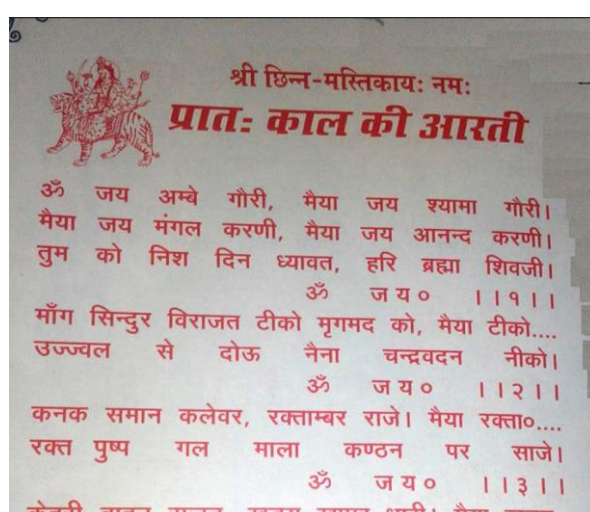 श्री छिन्न-मस्तिकायः नमः
प्रातः काल की आरती
ॐ जय अम्बे गौरी, मैया जय श्यामा गौरी।
मैया जय मंगल करणी, मैया जय आनन्द करणी।
तुम को निश दिन ध्यावत, हरि ब्रह्मा शिवजी।
ॐ जय० ।।१।।
माँग सिन्दुर विराजत टीको मृगमद को, मैया टीको....
उज्ज्वल से दोऊ नैना चन्द्रवदन नीको।
ॐ जय० ।।२।।
कनक समान कलेवर, रक्ताम्बर राजे। मैया रक्ता०....
रक्त पुष्प गल माला कण्ठन पर साजे।
ॐ जय० ।।३।।